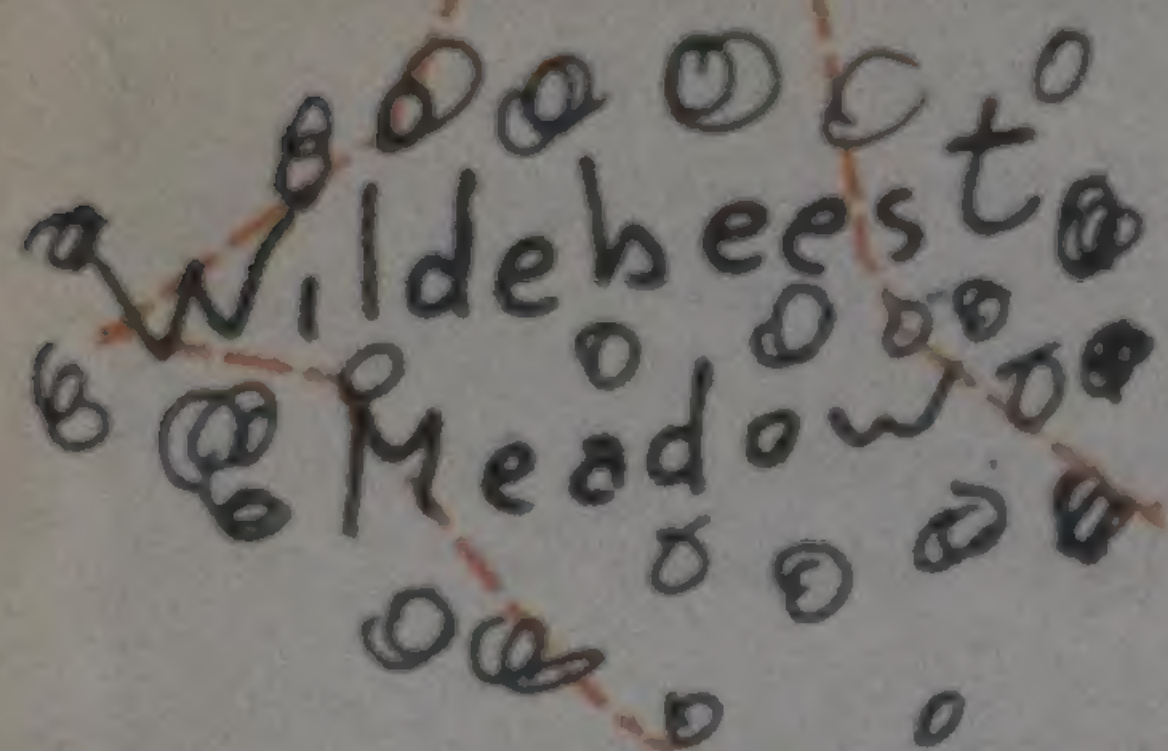 Wildebeest
Meadow